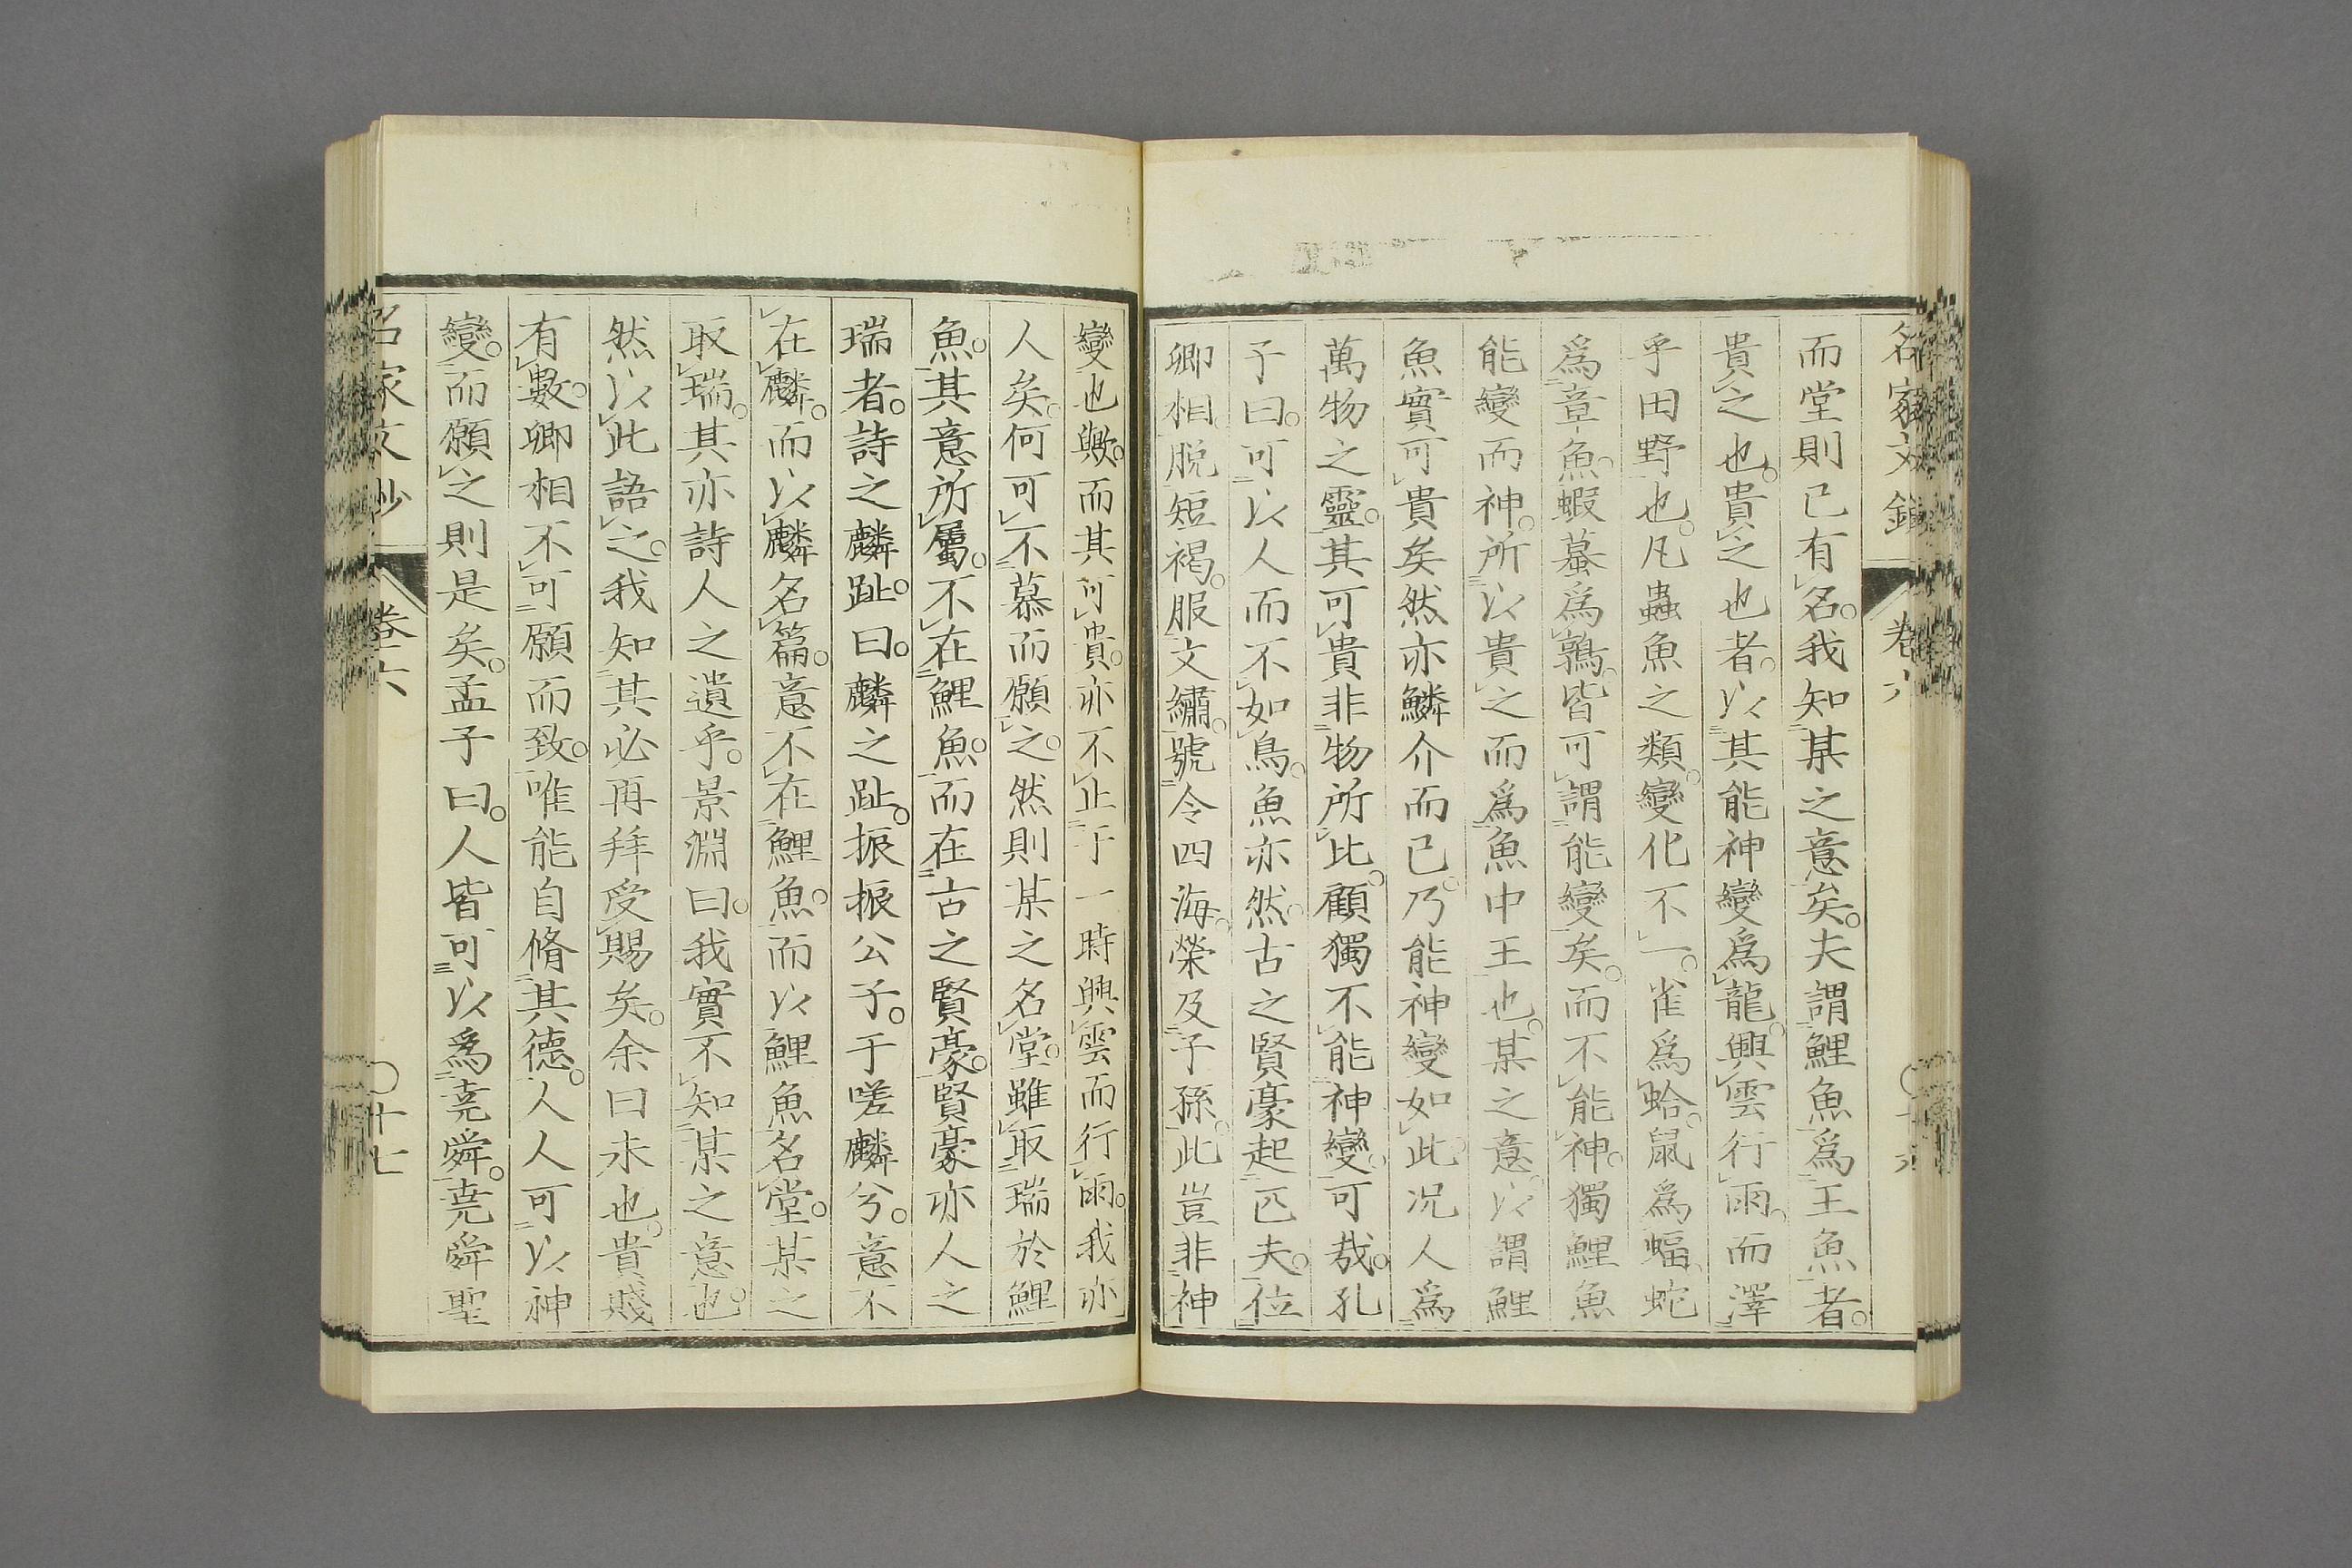 名家文鈔 卷六
而堂則已有名。我知某之意矣。夫謂鯉魚爲王魚者。
貴之也。貴之也者。以其能神變爲龍。興雲行雨。而澤
乎田野也。凡蟲魚之類。變化不一。雀爲蛤。鼠爲蝠。蛇
爲章魚。蝦蟇爲鶉。皆可謂能變矣。而不能神。獨鯉魚
能變而神。所以貴之而爲魚中王也。某之意。以謂鯉
魚實可貴矣然亦鱗介而已。乃能神變如此。况人爲
萬物之靈。其可貴非物所比。顧獨不能神變。可哉。孔
子曰。可以人而不如鳥。魚亦然。古之賢豪起匹夫。位
卿相。脱短褐。服文繡。號令四海。榮及子孫。此豈非神
變也歟。而其可貴。亦不止于一時興雲而行雨。我亦
人矣。何可不慕而願之。然則某之名堂。雖取瑞於鯉
魚。其意所屬。不在鯉魚。而在古之賢豪。賢豪亦人之
瑞者。詩之麟趾。曰。麟之趾。振振公子。于嗟麟兮。意不
在麟。而以麟名篇。意不在鯉魚。而以鯉魚名堂。某之
取瑞。其亦詩人之遺乎。景淵曰。我實不知某之意也。
然以此語之。我知其必再拜受賜矣。余曰未也。貴賤
有數。卿相不可願而致。唯能自脩其德。人人可以神
變。而願之則是矣。孟子曰。人皆可以爲堯舜。堯舜聖
名家文鈔 卷六 〇十七